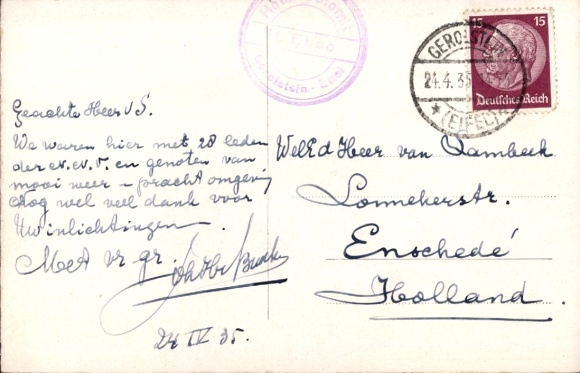 15 15
Deutsches Reich
GEROLSTEIN
24.4.35
(EIFEL)
Gerolstein - Eifel
Geachte Heer v S.
We waren hier met 28 leden
der N.C.V. en genoten van
mooi weer - pracht omgeving
Nog wel veel dank voor
Uw inlichtingen
Meet vr gr.
24 IV 35.
WelEd Heer van Dambeck
Lonnekerstr.
Enschedé
Holland